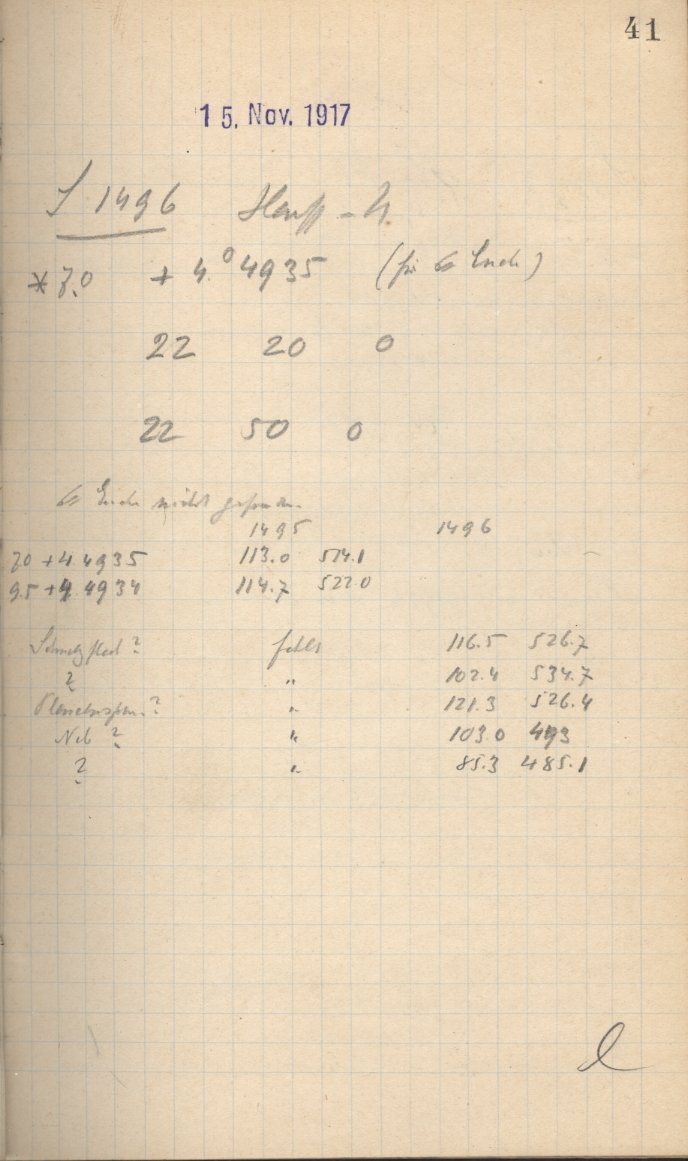 41
15. Nov. 1917
1496 Hauff - U.
* 7.0 + 4.° 4935 (für Encke)
22 20 0
22 50 0
Encke nicht gefunden
1495 1496
7.0 +4.4935 113.0 514.1
9.5 +4.4934 114.7 522.0
? fehlt 116.5 526.7
? " 102.4 534.7
? " 121.3 526.4
Neb ? " 103.0 493
? " 85.3 485.1